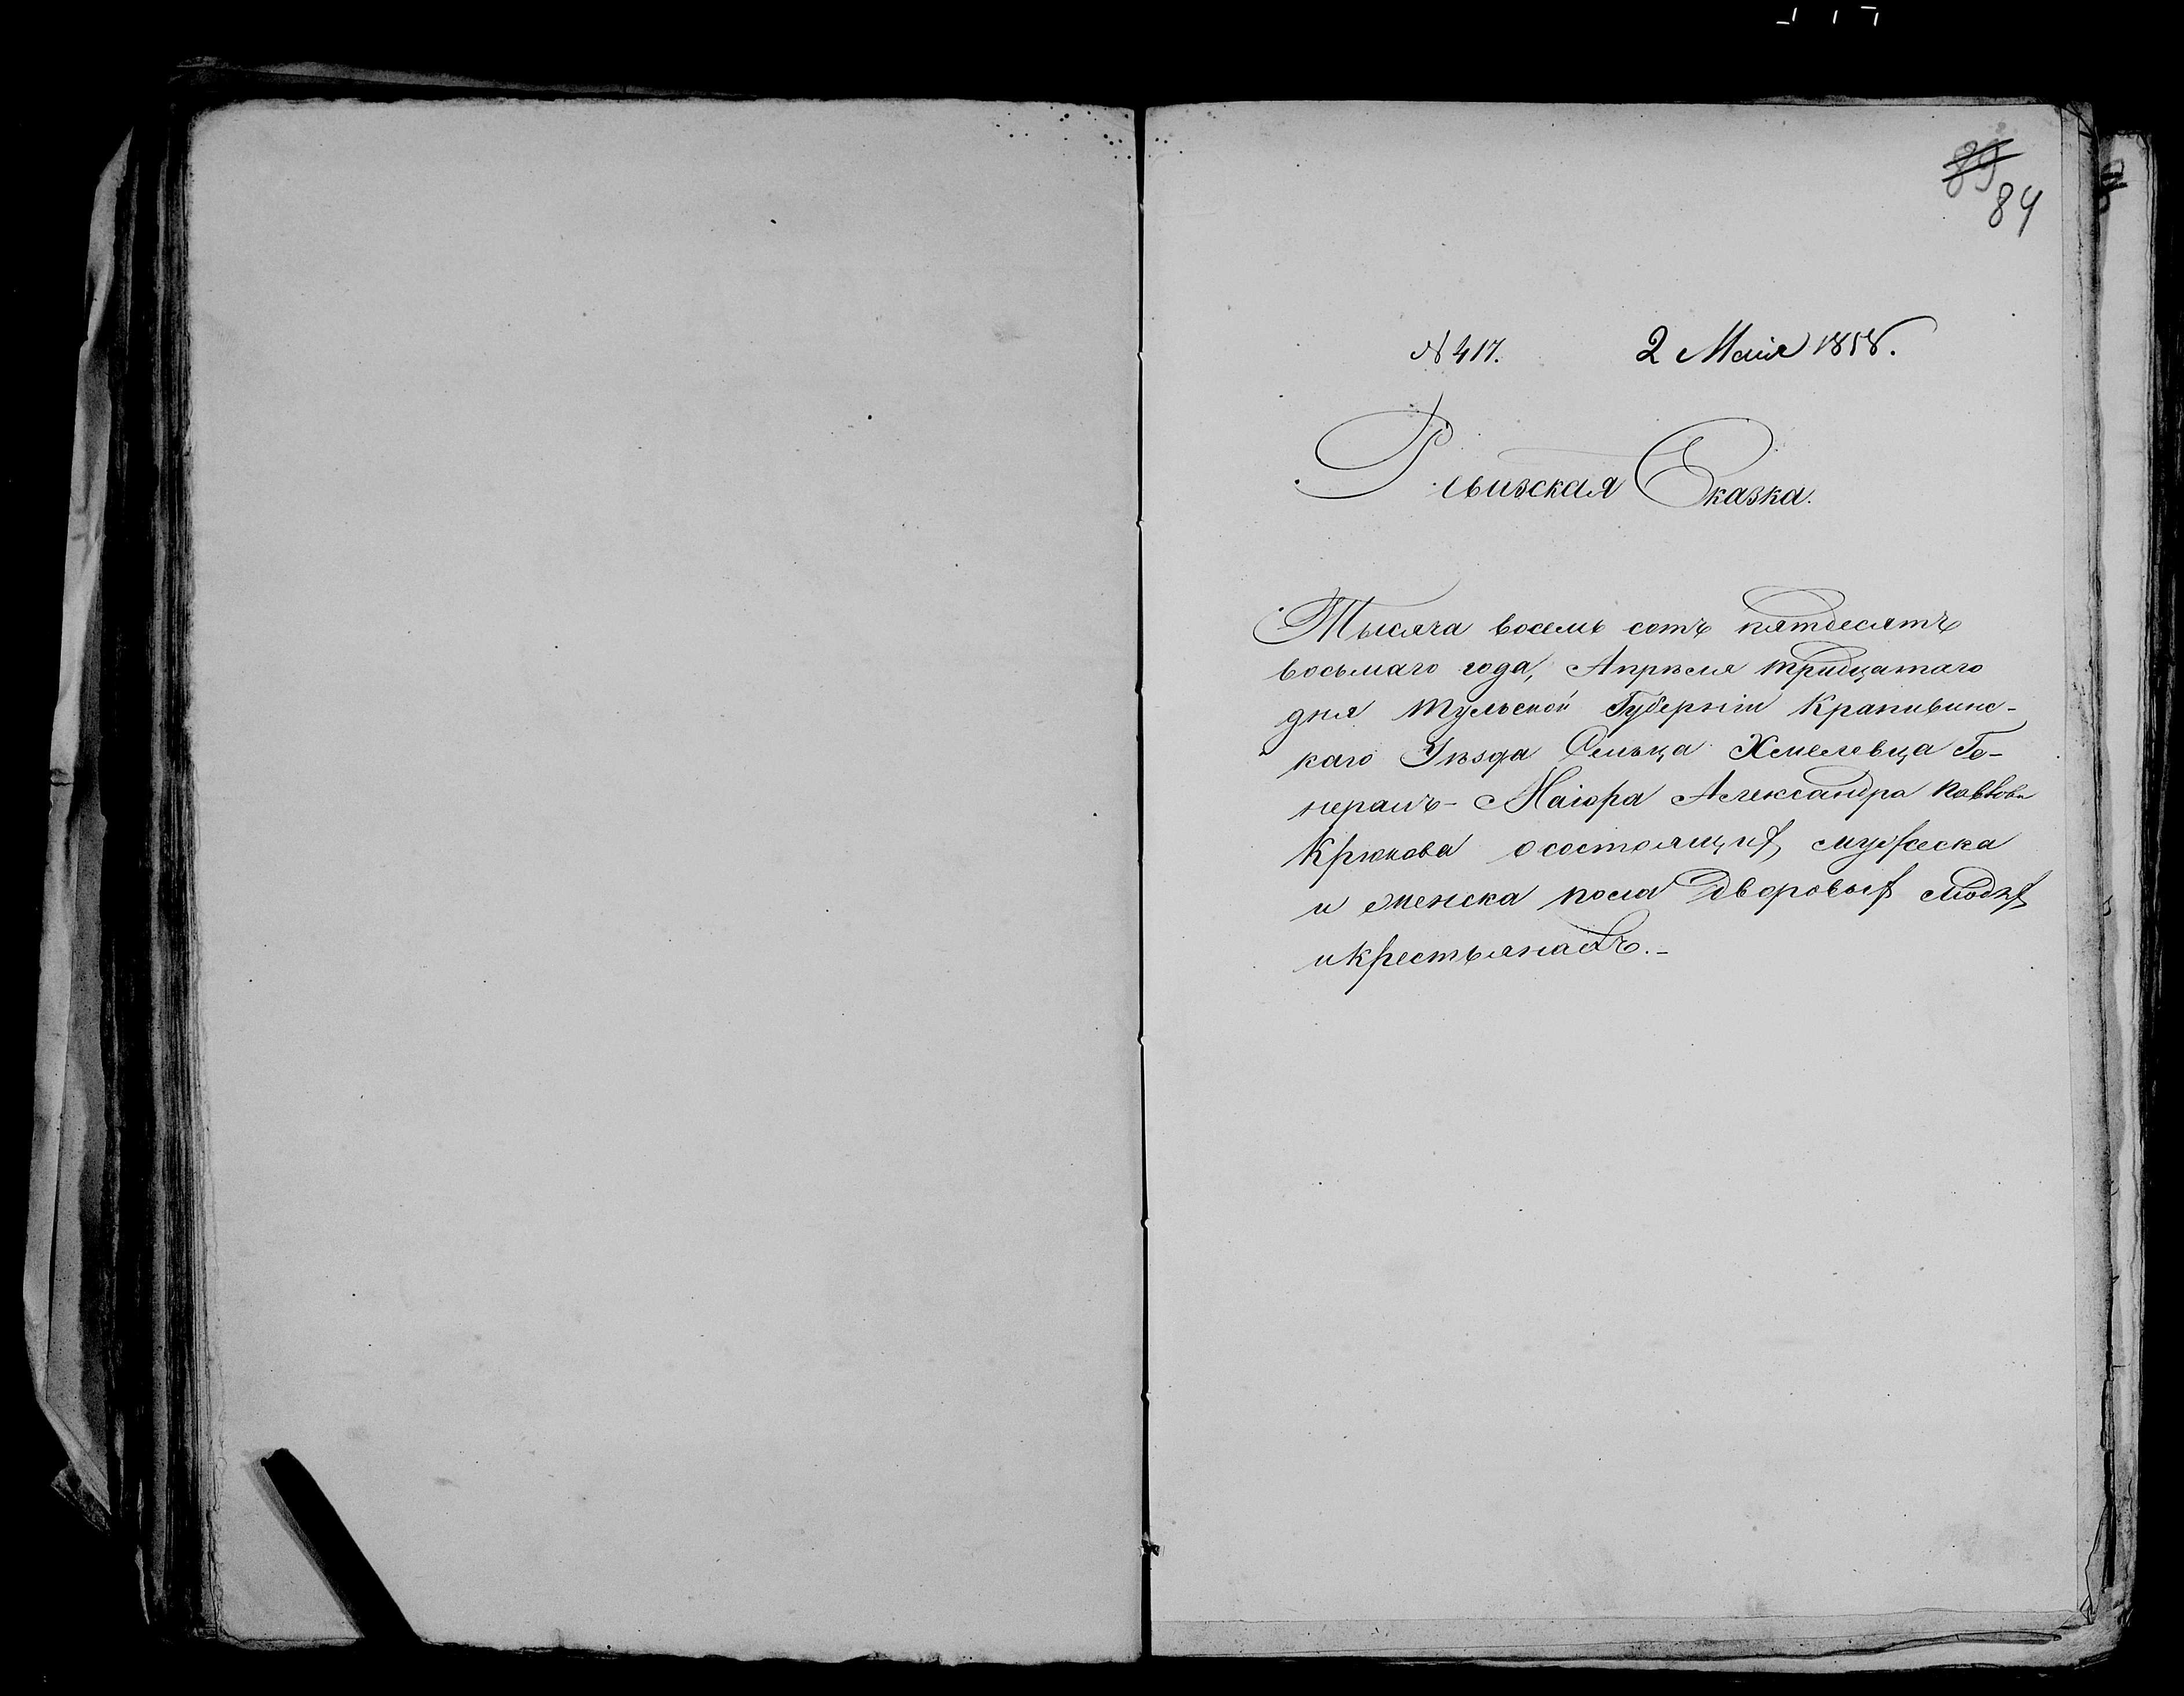 89
84
№ 417. 2 Маія 1858.
Ревизская Сказка.
Тысяча восемь сотъ пятдесятъ
восьмаго года, Апрѣля тридцатаго
дня Тульской Губерніи Крапивинс-
каго Уѣзда Сельца Хмелевца Ге-
нералъ-Маіора Александра Павлова
Крюкова о состоящихъ мужеска
и женска пола дворовыхъ людяхъ
и крестьянахъ.-